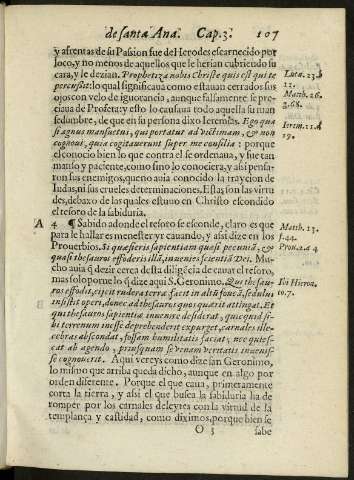 de santa Ana. Cap. 3. 107
y afrentas de su Passion fue de Herodes escarnecido por
loco, y no menos de aquellos que le herian cubriendo su
cara, y le dezian. Prophetiza nobis Christe quis est qui te
percussit: lo qual significaua como estauan cerrados sus
ojos con velo de ignorancia, aunque falsamente se pre-
ciaua de Profeta: y esto lo causaua todo aquella su man
sedumbre, de que en su persona dixo Ieremias. Ego qua
si agnus mansuetus, qui portatur ad victimam, & non
cognoui, quia cogitauerunt super me consilia: porque
el conocio bien lo que contra el se ordenaua, y fue tan
manso y paciente, como sino lo conociera, y assi pensa-
ron sus enemigos, quẽno auia conocido la trayçion de
Iudas, ni sus crueles determinaciones. Estas son las virtu
des, debaxo de las quales estuuo en Christo escondido
el tesoro de la sabiduria.
A 4 ¶ Sabido adonde el tesoro se esconde, claro es que
para le hallar es menester yr cauando, y assi dize en los
Prouerbios. Si quæsieris sapientiam quasi pecuniã, &
quasi thesauros effoderis illã, inuenies scientiã Dei. Mu-
cho auia q̃ dezir cerca desta diligẽcia de cauar el tesoro,
mas solo porne lo q̃ dize aqui S. Geronimo. Qui thesau-
ros effodit, eijcit rudera terræ facit in altũ foueã, sedulus
insistit operi, donec ad thesauros quos quærit attingat. Et
qui thesauros sapientiæ inuenire desiderat, quicquid si-
bi terrenum inesse deprehenderit expurget, carnales ille-
cebras abscondat, fossam humilitatis faciat; nec quies-
cat ab agendo, priusquam se venam veritatis inuenis-
se cognouerit. Aqui vereys como dize san Geronimo,
lo mismo que arriba queda dicho, aunque en algo por
orden diferente. Porque el que caua, primeramente
corta la tierra, y assi el que busca la sabiduria ha de
romper por los carnales deleytes con la virtud de la
templança y castidad, como diximos, porque bien se
O 3 sabe
Luca. 23. b
22.
Matth. 26.
g. 68.
Ierem. 11. d
19.
Matth. 13.
f. 44.
Prou. 2. a 4
Ibi Hieron.
10. 7.
B